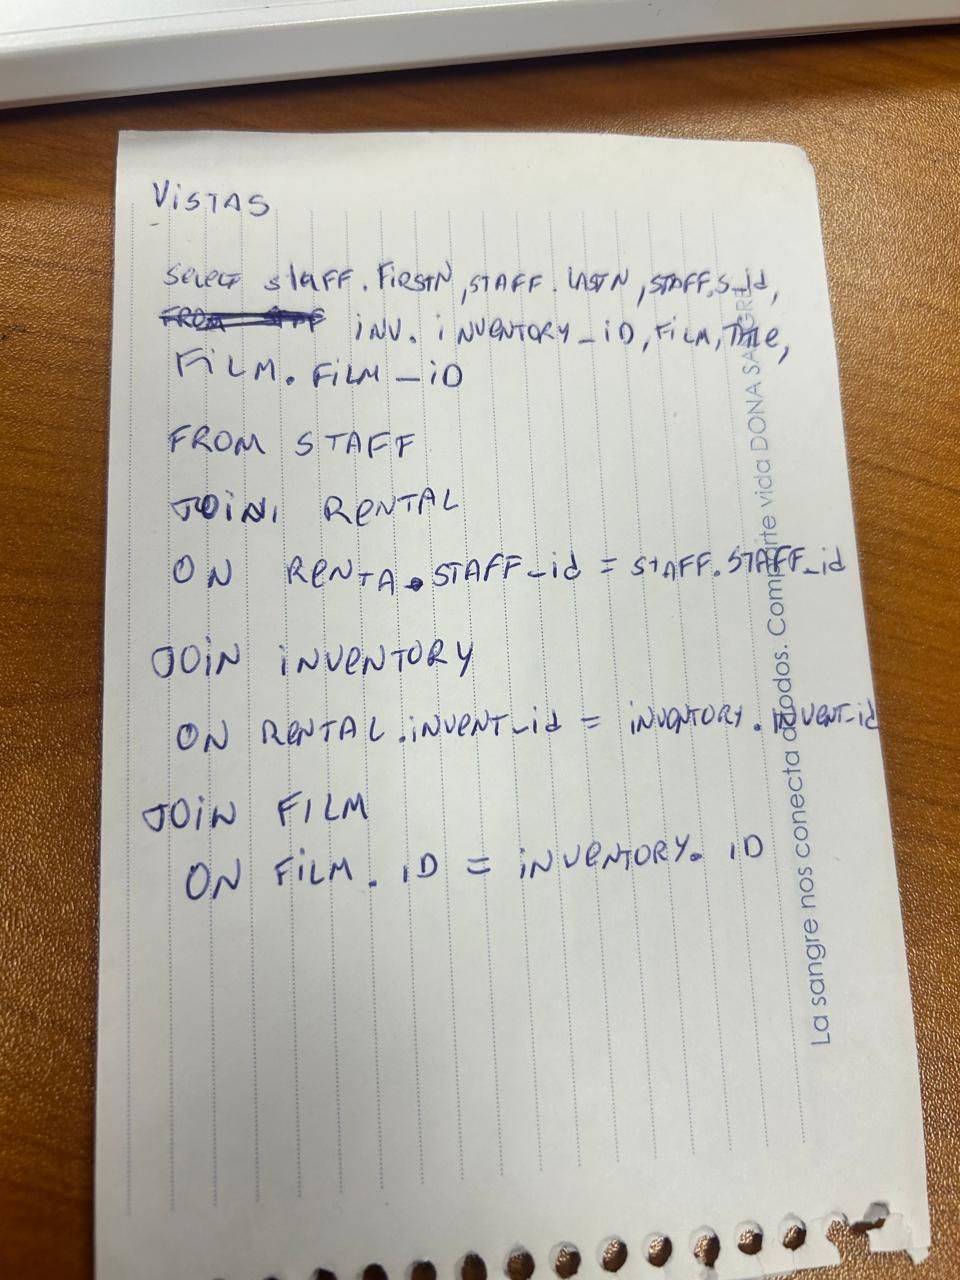 VISTAS
Select staff.FIRSTN,STAFF.LASTN,STAFF,S_id,
FROM STAFF inv.iNVENTORY_iD,FiLM,Title,
FiLM.FiLM_iD
FROM STAFF
JOiN, RENTAL
ON RENTA.STAFF_id = STAFF.STAFF_id
JOiN iNVENTORY
ON RENTAL.iNVENT_id = iNVENTORY.iNVENT_id
JOiN FILM
ON FiLM.iD = iNVENTORY.iD
La sangre nos conecta a todos. Comparte vida DONA SANGRE